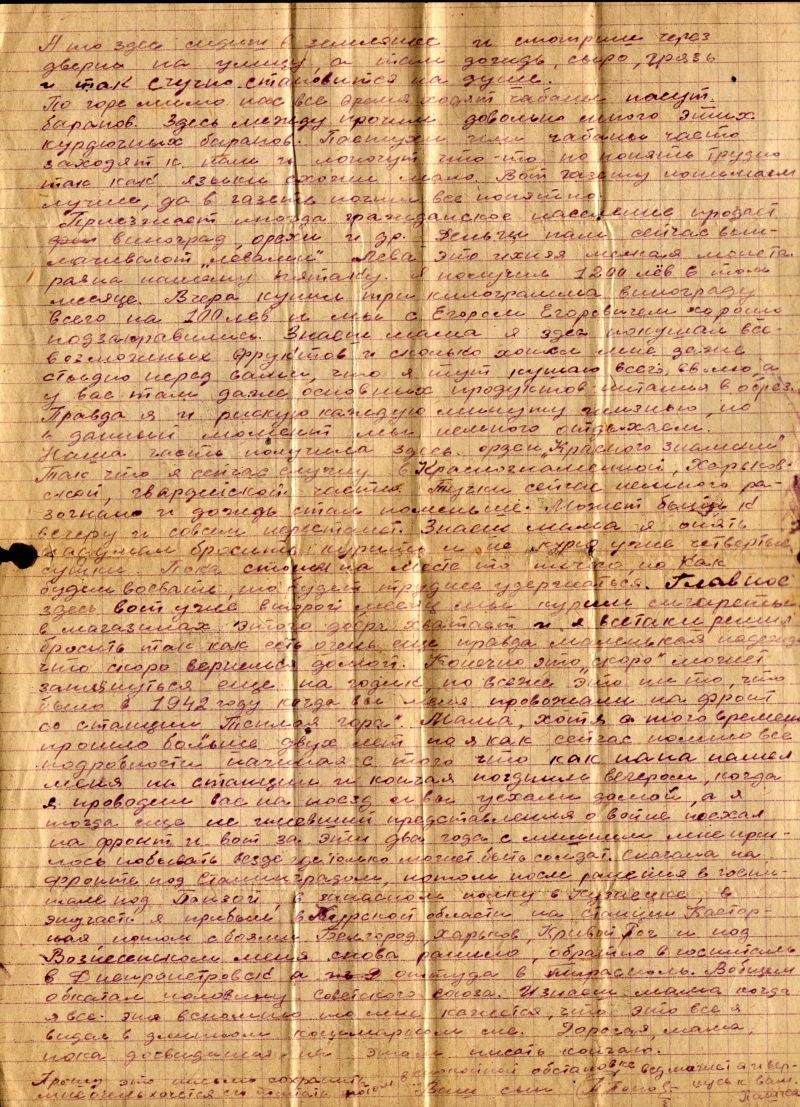 А то здесь сидишь в землянке и смотришь через
дверь на улицу, а там дождь, сыро, грязь
и так скучно становится на душе.
По горе мимо нас все время ходят чабаны пасут
баранов. Здесь между прочим довольно много этих
курдючных баранов. Пастухи или чабаны часто
заходят к нам и лопочут что-то, но понять трудно
так как языки схожи мало. Вот газету понимаем
лучше, да в газете почти все понятно.
Приезжает иногда гражданское население продает
виноград, орехи и др. Деньги нам сейчас выпла-
чивают „левами" Лева это ихняя мелкая монета
равна нашему пятаку. Я получил 1200 лёв в том
месяце. Вчера купили три килограмма винограду
всего на 100 лев и мы с Егором Егоровичем хорошо
подзаправились. Знаеш мама я здесь покушал все-
возможных фруктов и сколько хотел мне даже
стыдно перед вами, что я тут кушаю всего вволю, а
у вас там даже основных продуктов питания в обрез.
Правда я и рискую каждую минуту жизнью, но
в данный момент мы немного отдыхаем.
Наша часть получила здесь орден „Красного знамени"
Так что я сейчас служу в Краснознаменной, Харьков-
ской, гвардейской части. Тучки сейчас немного ра-
зогнало и дождь стал поменьше. Может быть к
вечеру и совсем перестанет. Знаеш мама я опять
надумал бросить курить и не курю уже четвертые
сутки. Пока стоим на месте то ничего, но как
будем воевать, то будет труднее удержаться. Главное
здесь вот уже второй месяц мы курим сигареты
в магазинах этого добра хватает и я всетаки решил
бросить так как есть очень еще правда маленькая надежда
что скоро вернешся домой. Конечно это „скоро" может
затянуться еще на годик, но всеже это не то, что
было в 1942 году когда вы меня провожали на фронт
со станции Теплая гора". Мама, хотя с того времени
прошло больше двух лет но я как сейчас помню все
подробности начиная с того что как папа нашел
меня на станции и кончая поздним вечером, когда
я проводил вас на поезд и вы уехали домой, а я
тогда еще не имевший представления о войне поехал
на фронт и вот за эти два года с лишним мне приш-
лось побывать везде где только может быть солдат. Сначала на
фронте под Сталинградом, потом после ранения в госпи-
тале под Пензой, в запасном полку в Кузнецке, в
эту часть я прибыл в Курской области на станции Кастор-
ная, потом с боями Белгород, Харьков, Кривой Рог и под
Вознесенском меня снова ранило, обратно в госпиталь
в Днепропетровск а оттуда в Тирасполь. Вобщем
обкатал половину Советского союза. И знаеш мама когда
я все эти вспомню то мне кажется, что это все я
видел в длинном кошмарном сне. Дорогая, мама,
пока досвидания, на этом писать кончаю.
Прошу это письмо сохранить
мне очень хочется его почитать потом в спокойной обстановке
Ваш сын (А Попов)